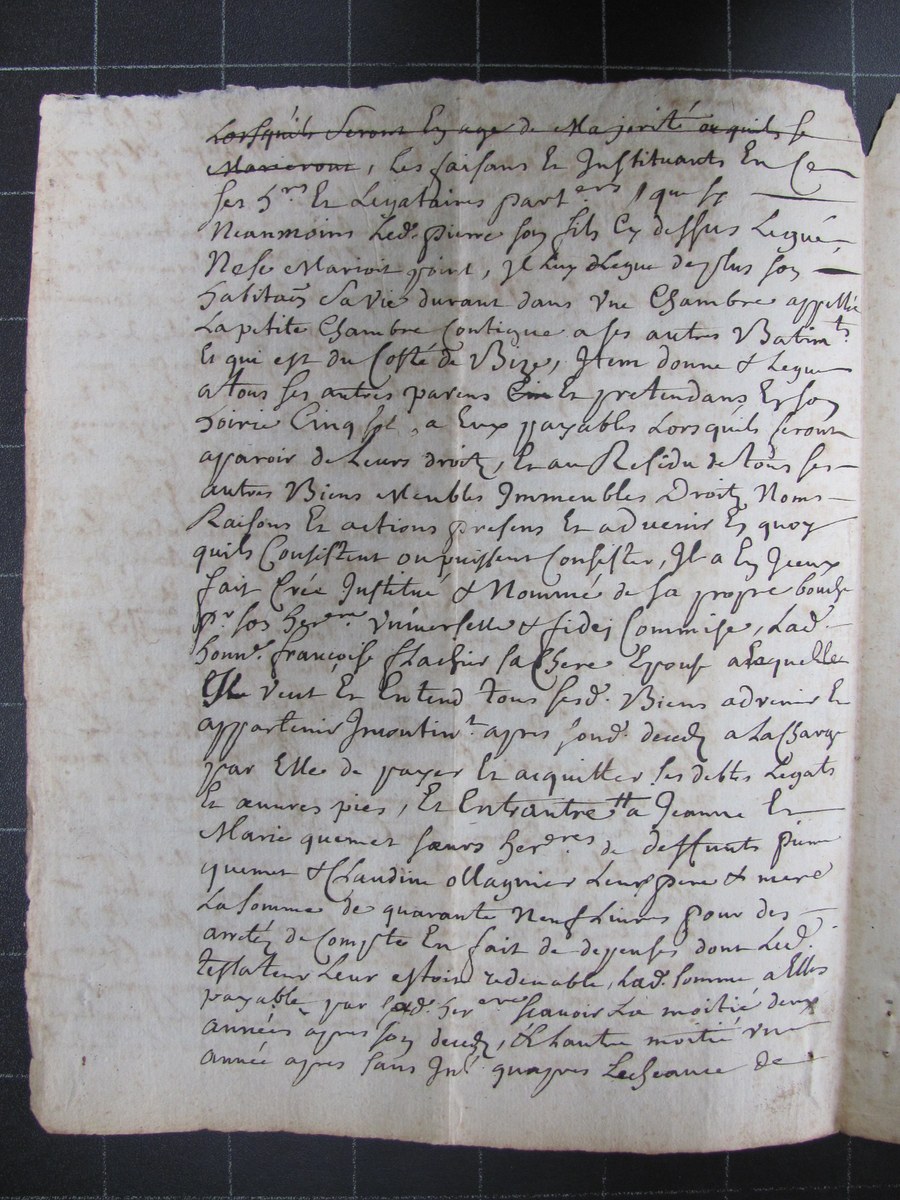 Lorsquils seront En age de Majorité ou quils se
Marieront, Les faisans Et Instituants En Ce
ses hrs Et Legataires parters, que sy
Neanmoins Led. pierre son fils Cy dessus Legué,
Nese Marioit point, Il Luy Legue deplus son
habitaõn Savie durant dans vne Chambre appellée
Lapetite Chambre Contigue a ses autres Batimts
Et qui est du Costé de Bize, Item donne & Legue
atous ses autres parens Et pretendans En son
hoirie Cinq sols, a Eux payables Lorsquils feront
aparoir de Leurs droits, Et au Residu de tous ses
autres Biens Meubles Immeubles Droits Noms
Raisons Et actions presens Et advenir En quoy
quils Consistent ou puissent Consister, Il a En Iceux
fait Créé Institué & Nommé de sa propre bouche
pr son herere vniverselle & fidei Commise, Lad.
honn. françoise sa Chere Epouse a Laquelle
Il veut Et Entend tous sesd. Biens advenir Et
appartenir Incontint. apres sond. deceds a La Charge
par Elle de payer Et acquitter ses debtes Legats
Et œuvres pies, Et Entrautrett a Jeanne Et
Marie quemet sœurs herres de deffunts pierre
quemet & Claudine ollagnier Leurs pere & mere
La somme de quarante Neuf Livres pour des
arretés de Compte En fait de depenses dont Led.
testateur Leur estoit redevable, Lad. somme a Elles
payable par sad. herere scavoir La moitié deux
années apres son deceds, & Lautre moitié vne
année apres sans Int. quapres Lecheance de